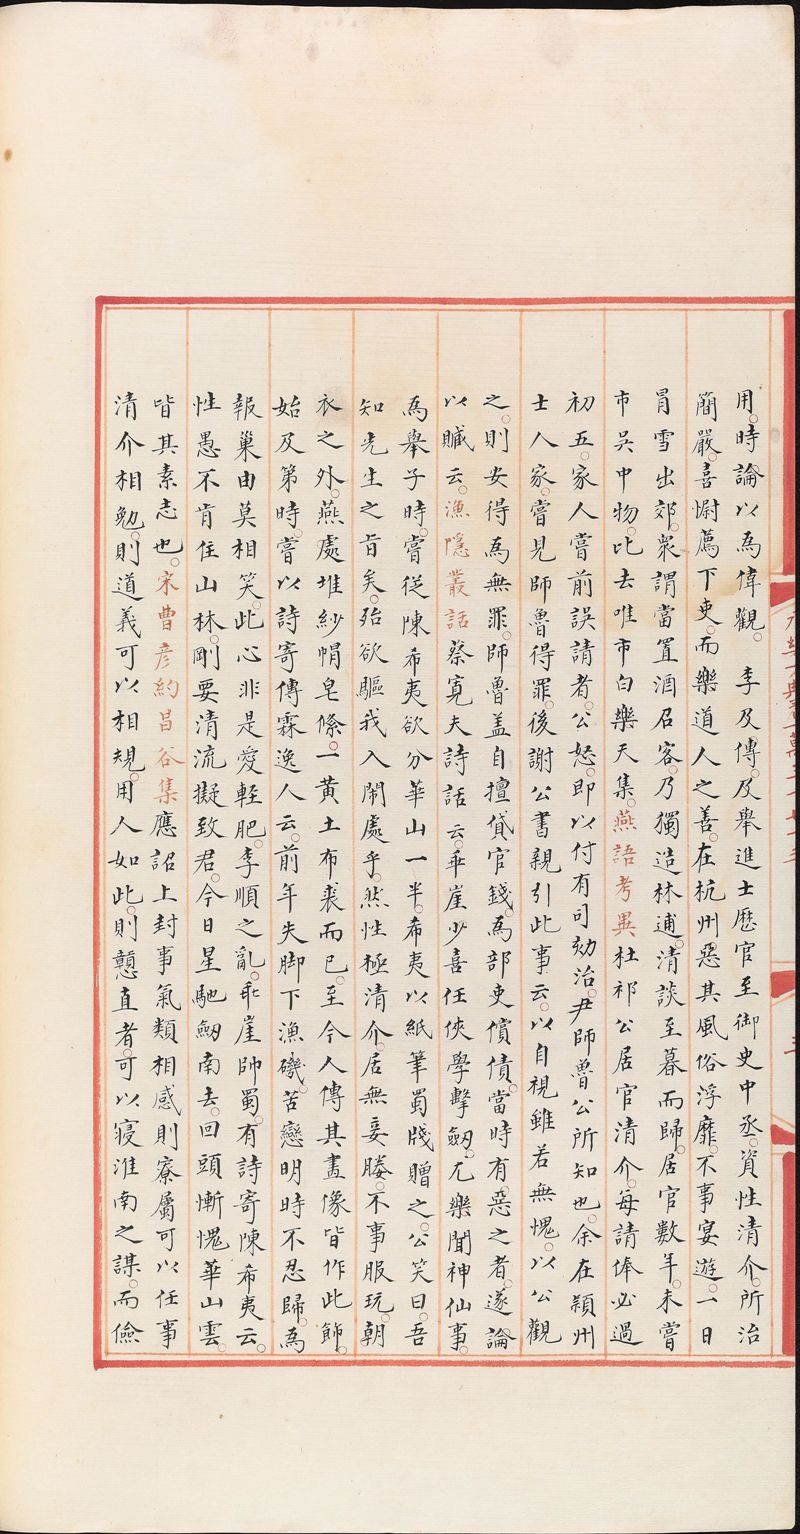 用。時論以為偉觀。　李及傳。及舉進士歷官至御史中丞。資性清介。所治
簡嚴。喜慰薦下吏。而樂道人之善。在杭州。惡其風俗浮靡。不事宴遊。一日
冐雪出郊。衆謂當置酒召客。乃獨造林逋。清談至暮而歸。居官數年。未嘗
市吳中物。比去唯市白樂天集。燕語考異杜祁公居官清介。每請俸必過
初五。家人嘗前誤請者。公怒。即以付有司劾治。尹師魯公所知也。余在潁州
士人家。嘗見師魯得罪。後謝公書親引此事云。以自視雖若無愧。以公觀
之。則安得為無罪。師魯盖自擅貸官錢。為部吏償債。當時有惡之者。遂論
以贓云。漁隱叢話蔡寬夫詩話云。乖崖少喜任俠學擊劒。尤樂聞神仙事。
為舉子時。嘗從陳希夷欲分華山一半。希夷以紙筆蜀牋贈之。公笑曰。吾
知先生之旨矣。殆欲驅我入閙處乎。然性極清介。居無妾媵。不事服玩。朝
衣之外。燕處堆紗帽皂絛。一黃土布裘而已。至今人傳其畫像皆作此飾。
始及第時。嘗以詩寄傅霖逸人云。前年失脚下漁磯。苦戀明時不忍歸。為
報巢由莫相笑。此心非是愛輕肥。李順之亂。乖崖帥蜀。有詩寄陳希夷云。
性愚不肯住山林。剛要清流擬致君。今日星馳劒南去。回頭慚愧華山雲。
皆其素志也。宋曹彦約昌谷集應詔上封事氣類相感則寮屬可以任事
清介相勉。則道義可以相規。用人如此。則戇直者。可以寢淮南之謀。而儉